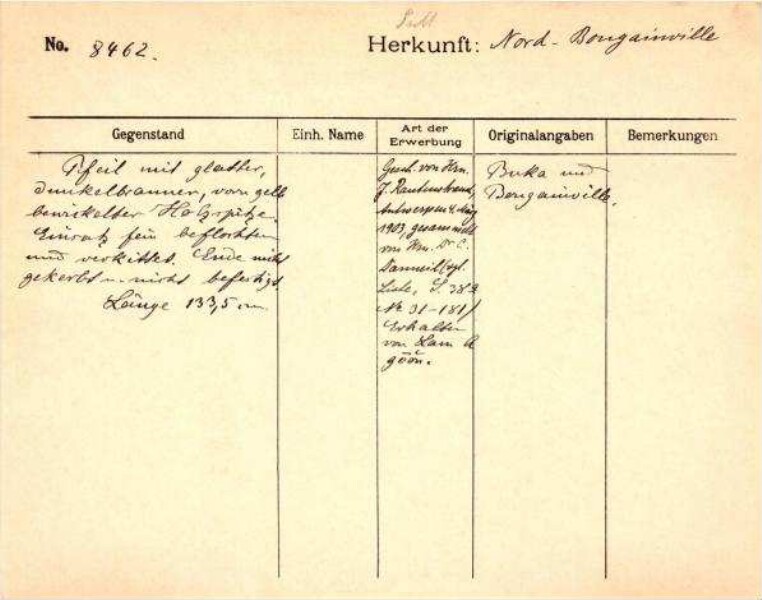 No. 8462.
Herkunft: Nord-Bougainville
Gegenstand
Einh. Name
Art der Erwerbung
Originalangaben
Bemerkungen
Pfeil mit glatter,
dunkelbrauner, vorn gelb
bewickelter Holzspitze.
Einsatz fein beflochten
und verkittet. Ende nicht
gekerbt u. nicht befestigt.
Länge 133,5 cm.
Gesch. von Hrn.
J. Rautenstrauch,
Antwerpen
1903, gesammelt
von Hrn. Dr. C.
Liste, S. 382
Nr 31-181)
Erhalten
von
Buka und
Bougainville.